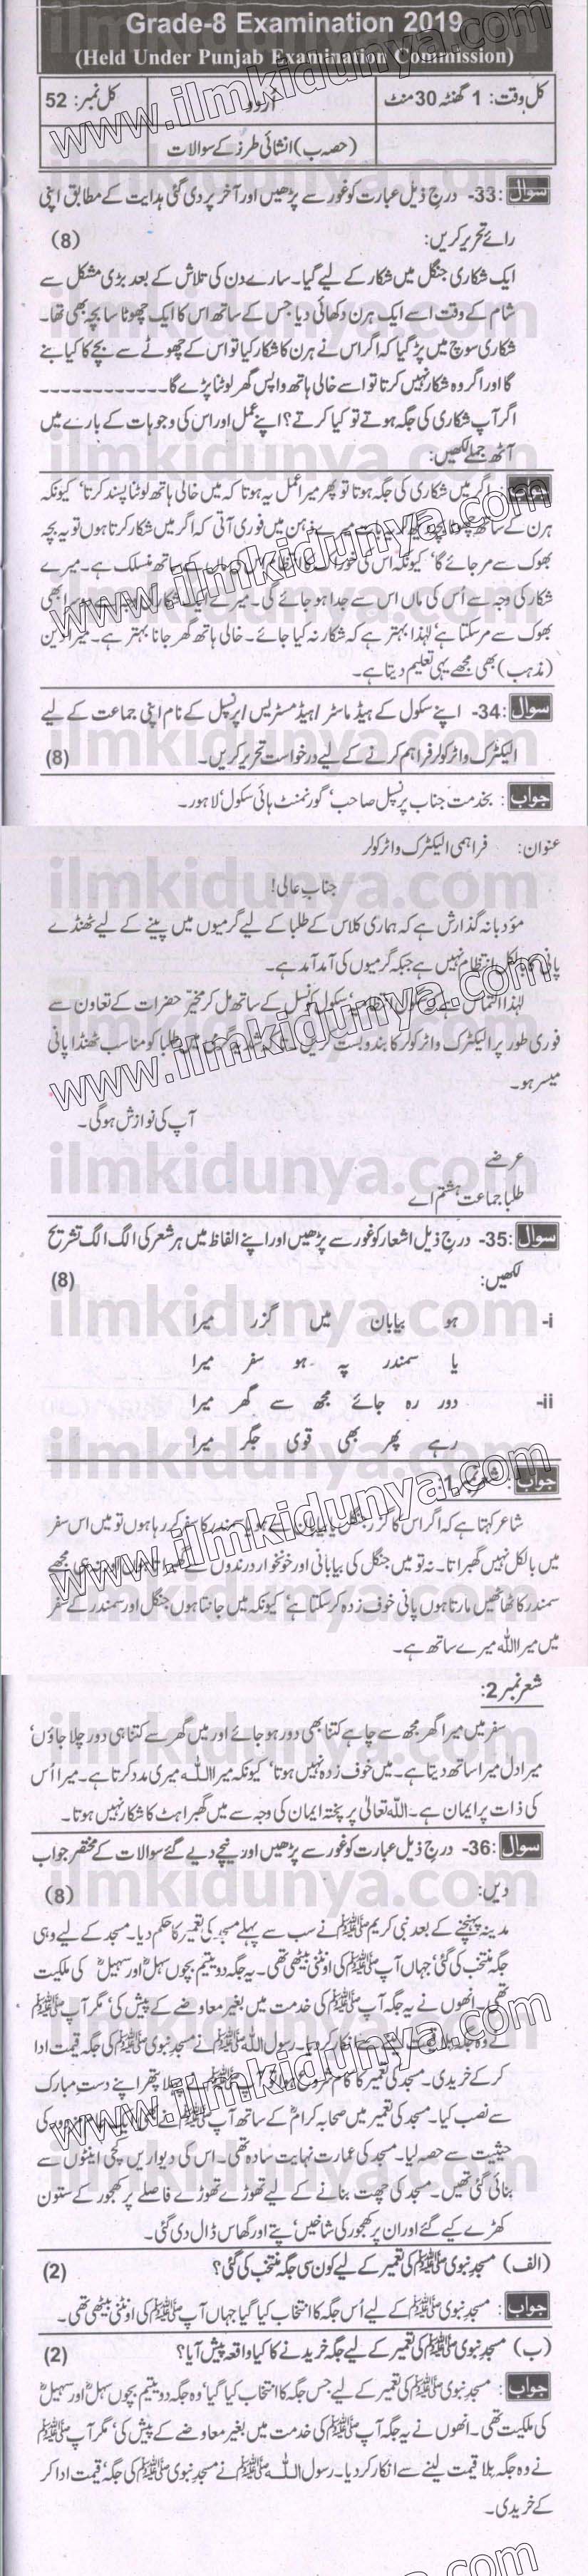 Grade-8 Examination 2019
(Held Under Punjab Examination Commission)
کل وقت: 1 گھنٹہ 30 منٹ
اُردو
کل نمبر: 52
(حصہ ب) انشائی طرز کے سوالات
سوال :33- درج ذیل عبارت کو غور سے پڑھیں اور آخر پر دی گئی ہدایت کے مطابق اپنی
رائے تحریر کریں: (8)
ایک شکاری جنگل میں شکار کے لیے گیا۔ سارے دن کی تلاش کے بعد بڑی مشکل سے
شام کے وقت اسے ایک ہرن دکھائی دیا جس کے ساتھ اس کا ایک چھوٹا سا بچہ بھی تھا۔
شکاری سوچ میں پڑ گیا کہ اگر اس نے ہرن کا شکار کیا تو اس کے چھوٹے سے بچے کا کیا بنے
گا اور اگر وہ شکار نہیں کرتا تو اسے خالی ہاتھ واپس گھر لوٹنا پڑے گا------------
اگر آپ شکاری کی جگہ ہوتے تو کیا کرتے؟ اپنے عمل اور اس کی وجوہات کے بارے میں
آٹھ جملے لکھیں:
اگر میں شکاری کی جگہ ہوتا تو پھر میرا عمل یہ ہوتا کہ میں خالی ہاتھ لوٹنا پسند کرتا' کیونکہ
ہرن کے ساتھ ذہن میں فوری آتی کہ اگر میں شکار کرتا ہوں تو یہ بچہ
بھوک سے مر جائے گا' کیونکہ اس کی خوراک کا کے ساتھ منسلک ہے۔ میرے
شکار کی وجہ سے اُس کی ماں اس سے جدا ہو جائے گی۔ میرے ایک شکار بھی
بھوک سے مر سکتا ہے' لہٰذا بہتر ہے کہ شکار نہ کیا جائے۔ خالی ہاتھ گھر جانا بہتر ہے۔ میرا دین
(مذہب) بھی مجھے یہی تعلیم دیتا ہے۔
سوال :34- اپنے سکول کے ہیڈ ماسٹر/ہیڈ مسٹریس/پرنسپل کے نام اپنی جماعت کے لیے
الیکٹرک واٹر کولر فراہم کرنے کے لیے درخواست تحریر کریں۔ (8)
جواب : بخدمت جناب پرنسپل صاحب' گورنمنٹ ہائی سکول' لاہور۔
عنوان: فراہمی الیکٹرک واٹر کولر
جناب عالی!
مؤدبانہ گذارش ہے کہ ہماری کلاس کے طلبا کے لیے گرمیوں میں پینے کے لیے ٹھنڈے
پانی کا بالکل انتظام نہیں ہے جبکہ گرمیوں کی آمد آمد ہے۔
لہٰذا التماس ہے کہ سکول کونسل کے ساتھ مل کر مخیر حضرات کے تعاون سے
فوری طور پر الیکٹرک واٹر کولر کا بندوبست کریں تاکہ شدید گرمی میں طلبا کو مناسب ٹھنڈا پانی
میسر ہو۔
آپ کی نوازش ہو گی۔
عرضے
طلبا جماعت ہشتم اے
سوال :35- درج ذیل اشعار کو غور سے پڑھیں اور اپنے الفاظ میں ہر شعر کی الگ الگ تشریح
لکھیں: (8)
i- ہو بیابان میں گزر میرا
یا سمندر پہ ہو سفر میرا
ii- دور رہ جائے مجھ سے گھر میرا
رہے پھر بھی قوی جگر میرا
جواب : شعر نمبر 1:
شاعر کہتا ہے کہ اگر اس کا گزر جنگل یا بیابان سے ہو یا سمندر کا سفر کر رہا ہوں تو میں اس سفر
میں بالکل نہیں گھبراتا۔ نہ تو میں جنگل کی بیابانی اور خونخوار درندوں سے گھبراتا ہوں اور نہ ہی مجھے
سمندر کا ٹھاٹھیں مارتا ہوں پانی خوف زدہ کر سکتا ہے' کیونکہ میں جانتا ہوں جنگل اور سمندر کے سفر
میں میرا اللہ میرے ساتھ ہے۔
شعر نمبر 2:
سفر میں میرا گھر مجھ سے چاہے کتنا بھی دور ہو جائے اور میں گھر سے کتنا ہی دور چلا جاؤں'
میرا دل میرا ساتھ دیتا ہے۔ میں خوف زدہ نہیں ہوتا' کیونکہ میرا اللہ میری مدد کرتا ہے۔ میرا اُس
کی ذات پر ایمان ہے۔ اللہ تعالیٰ پر پختہ ایمان کی وجہ سے میں گھبراہٹ کا شکار نہیں ہوتا۔
سوال :36- درج ذیل عبارت کو غور سے پڑھیں اور نیچے دیے گئے سوالات کے مختصر جواب
دیں: (8)
مدینہ پہنچنے کے بعد نبی کریم ﷺ نے سب سے پہلے مسجد کی تعمیر کا حکم دیا۔ مسجد کے لیے وہی
جگہ منتخب کی گئی' جہاں آپ ﷺ کی اونٹنی بیٹھی تھی۔ یہ جگہ دو یتیم بچوں سہلؓ اور سہیلؓ کی ملکیت
تھی۔ انھوں نے یہ جگہ آپ ﷺ کی خدمت میں بغیر معاوضے کے پیش کی' مگر آپ ﷺ
نے وہ جگہ بلا قیمت لینے سے انکار کر دیا۔ رسول اللہ ﷺ نے مسجد نبوی ﷺ کی جگہ قیمت ادا
کر کے خریدی۔ مسجد کی تعمیر کا کام شروع ہوا تو آپ ﷺ نے پہلا پتھر اپنے دست مبارک
سے نصب کیا۔ مسجد کی تعمیر میں صحابہ کرامؓ کے ساتھ آپ ﷺ نے کی
حیثیت سے حصہ لیا۔ مسجد کی عمارت نہایت سادہ تھی۔ اس کی دیواریں کچی اینٹوں سے
بنائی گئی تھیں۔ مسجد کی چھت بنانے کے لیے تھوڑے تھوڑے فاصلے پر کھجور کے ستون
کھڑے کیے گئے اور ان پر کھجور کی شاخیں' پتے اور گھاس ڈال دی گئی۔
(الف) مسجد نبوی ﷺ کی تعمیر کے لیے کون سی جگہ منتخب کی گئی؟ (2)
جواب : مسجد نبوی ﷺ کے لیے اُس جگہ کا انتخاب کیا گیا جہاں آپ ﷺ کی اونٹنی بیٹھی تھی۔
(ب) مسجد نبوی ﷺ کی تعمیر کے لیے جگہ خریدنے کا کیا واقعہ پیش آیا؟ (2)
جواب : مسجد نبوی ﷺ کی تعمیر کے لیے جس جگہ کا انتخاب کیا گیا' وہ جگہ دو یتیم بچوں سہلؓ اور سہیلؓ
کی ملکیت تھی۔ انھوں نے یہ جگہ آپ ﷺ کی خدمت میں بغیر معاوضے کے پیش کی' مگر آپ ﷺ
نے وہ جگہ بلا قیمت لینے سے انکار کر دیا۔ رسول اللہ ﷺ نے مسجد نبوی ﷺ کی جگہ' قیمت ادا کر
کے خریدی۔